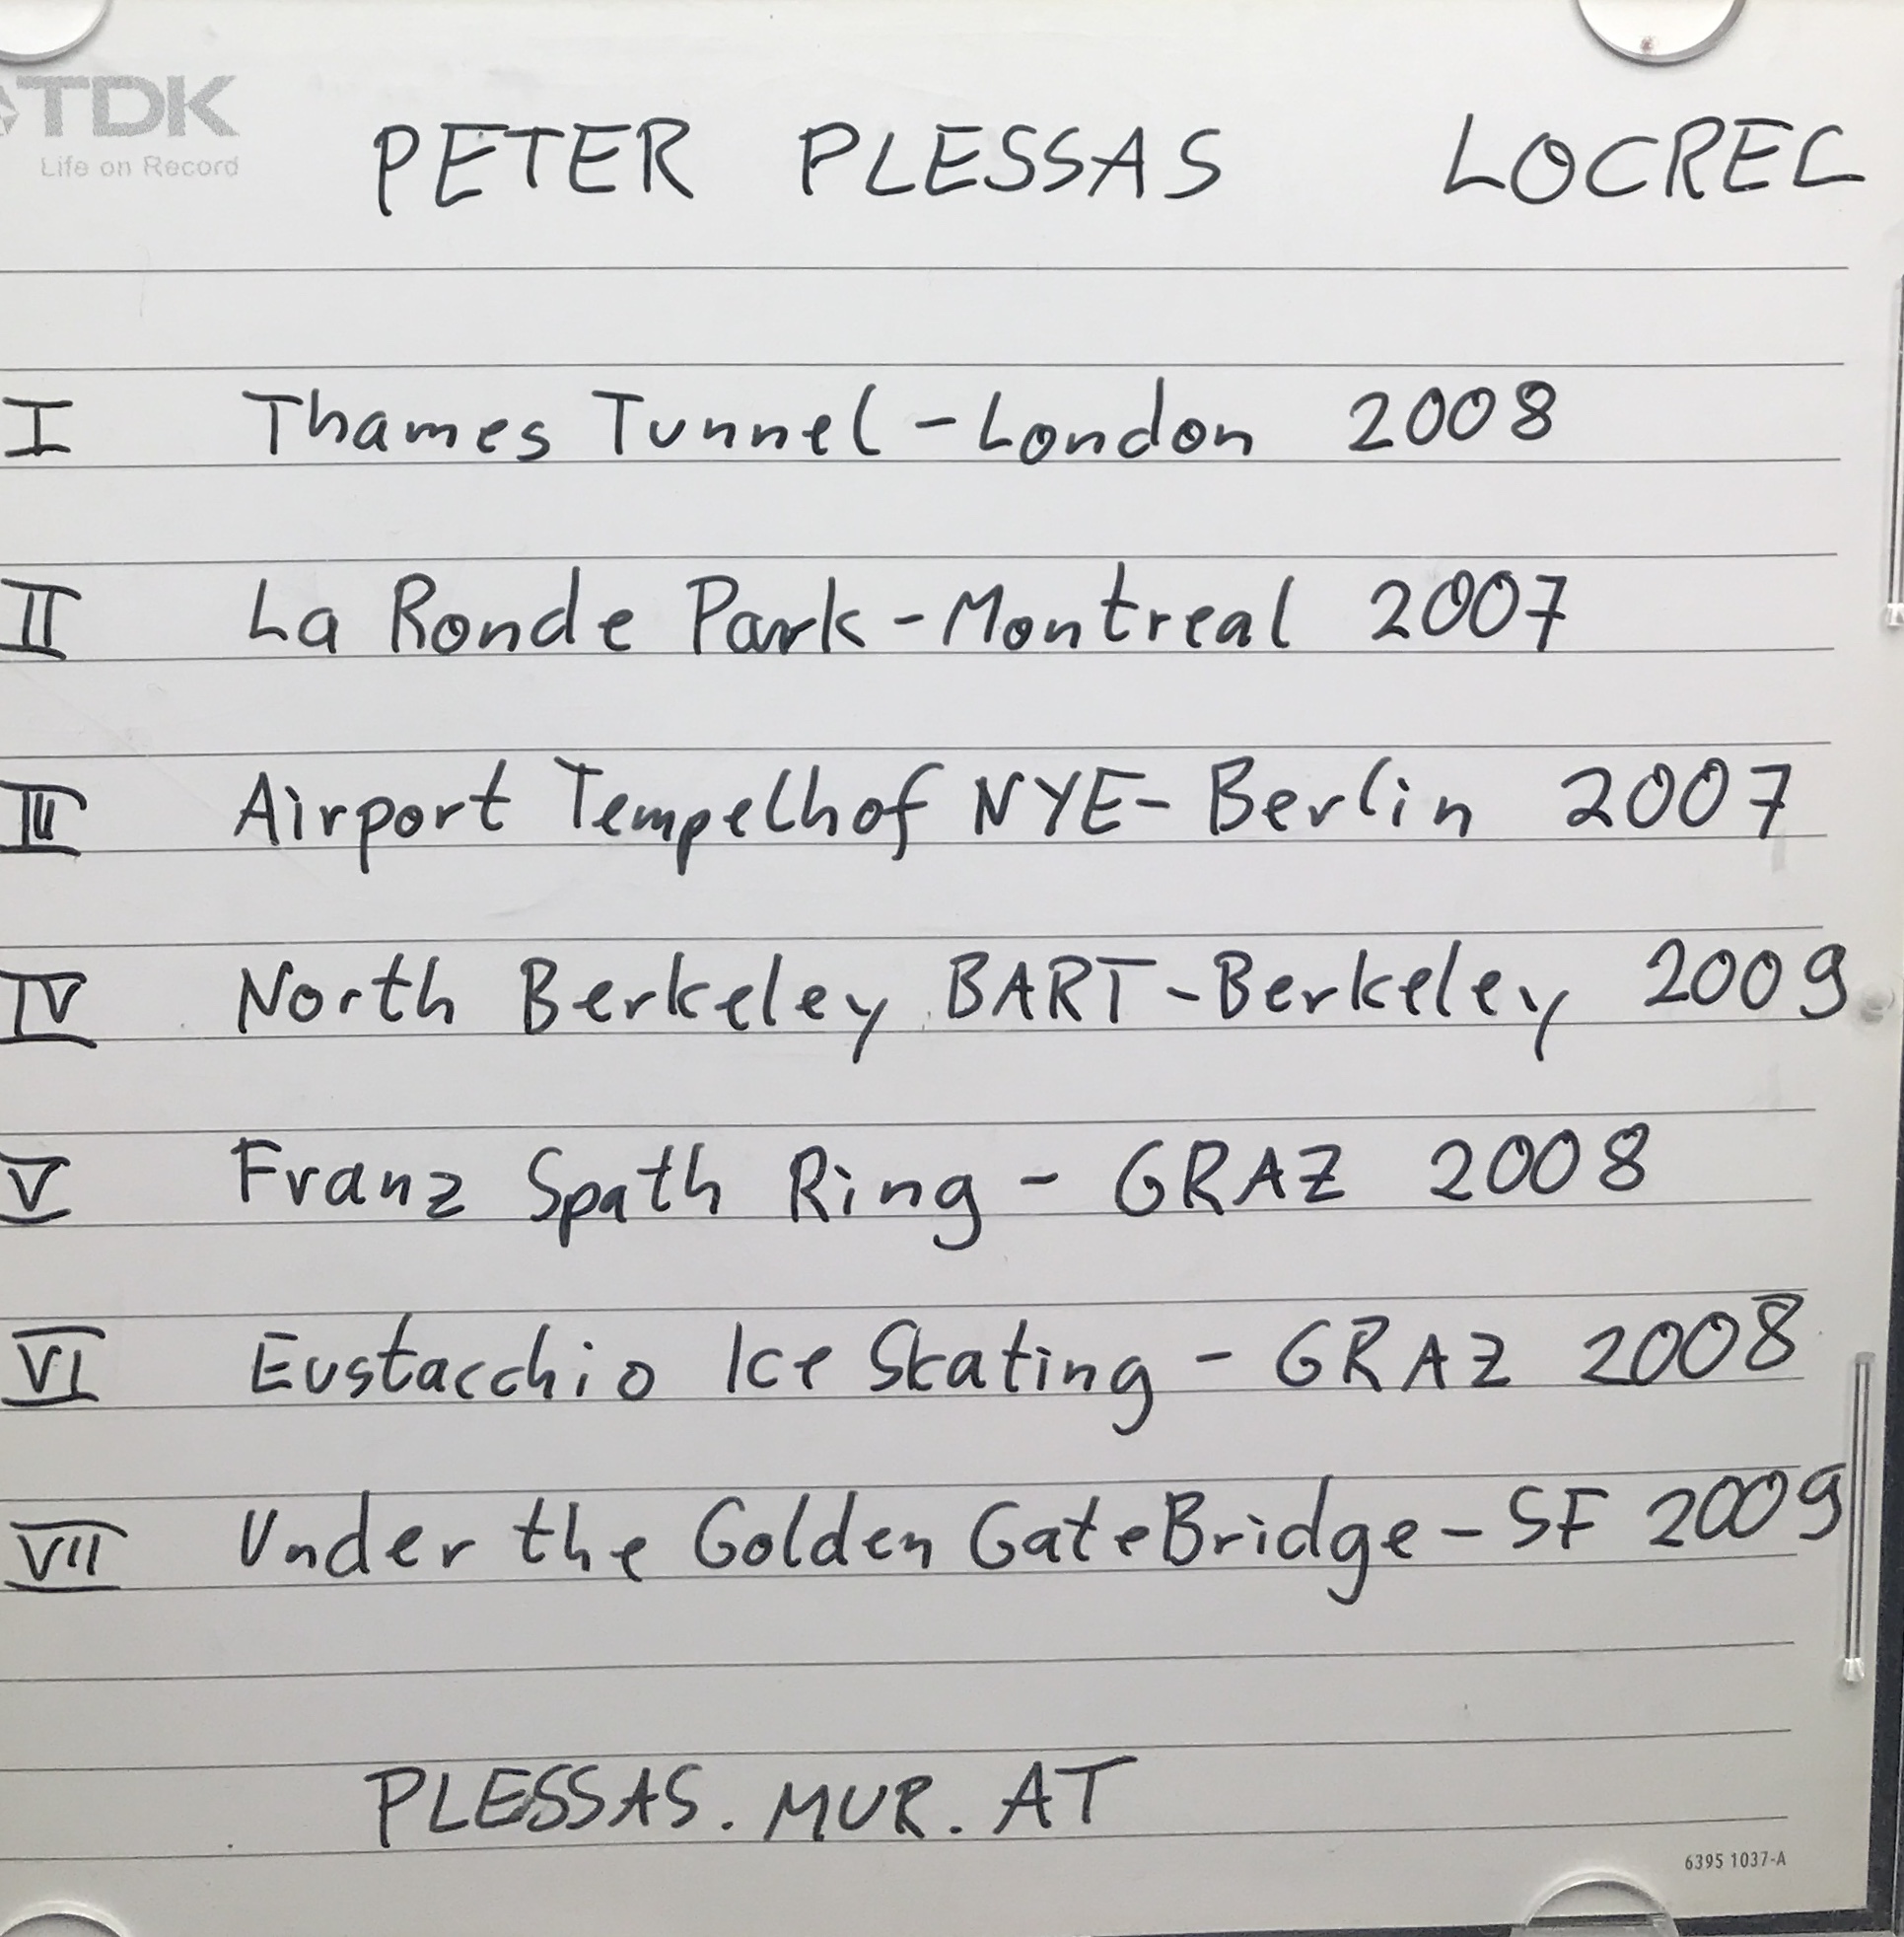 TDK
Life on Record
PETER PLESSAS LOCREC
I Thames Tunnel - London 2008
II La Ronde Park - Montreal 2007
III Airport Tempelhof NYE - Berlin 2007
IV North Berkeley BART - Berkeley 2009
V Franz Spath Ring - GRAZ 2008
VI Eustacchio Ice Skating - GRAZ 2008
VII Under the Golden Gate Bridge - SF 2009
PLESSAS.MUR.AT
6395 1037-A